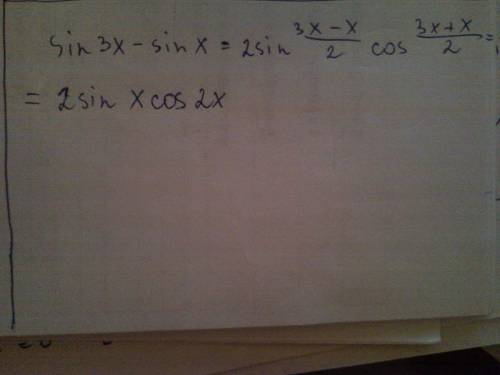 sin 3x - sin x = 2 sin (3x - x)/2 cos (3x + x)/2 =
= 2 sin x cos 2x